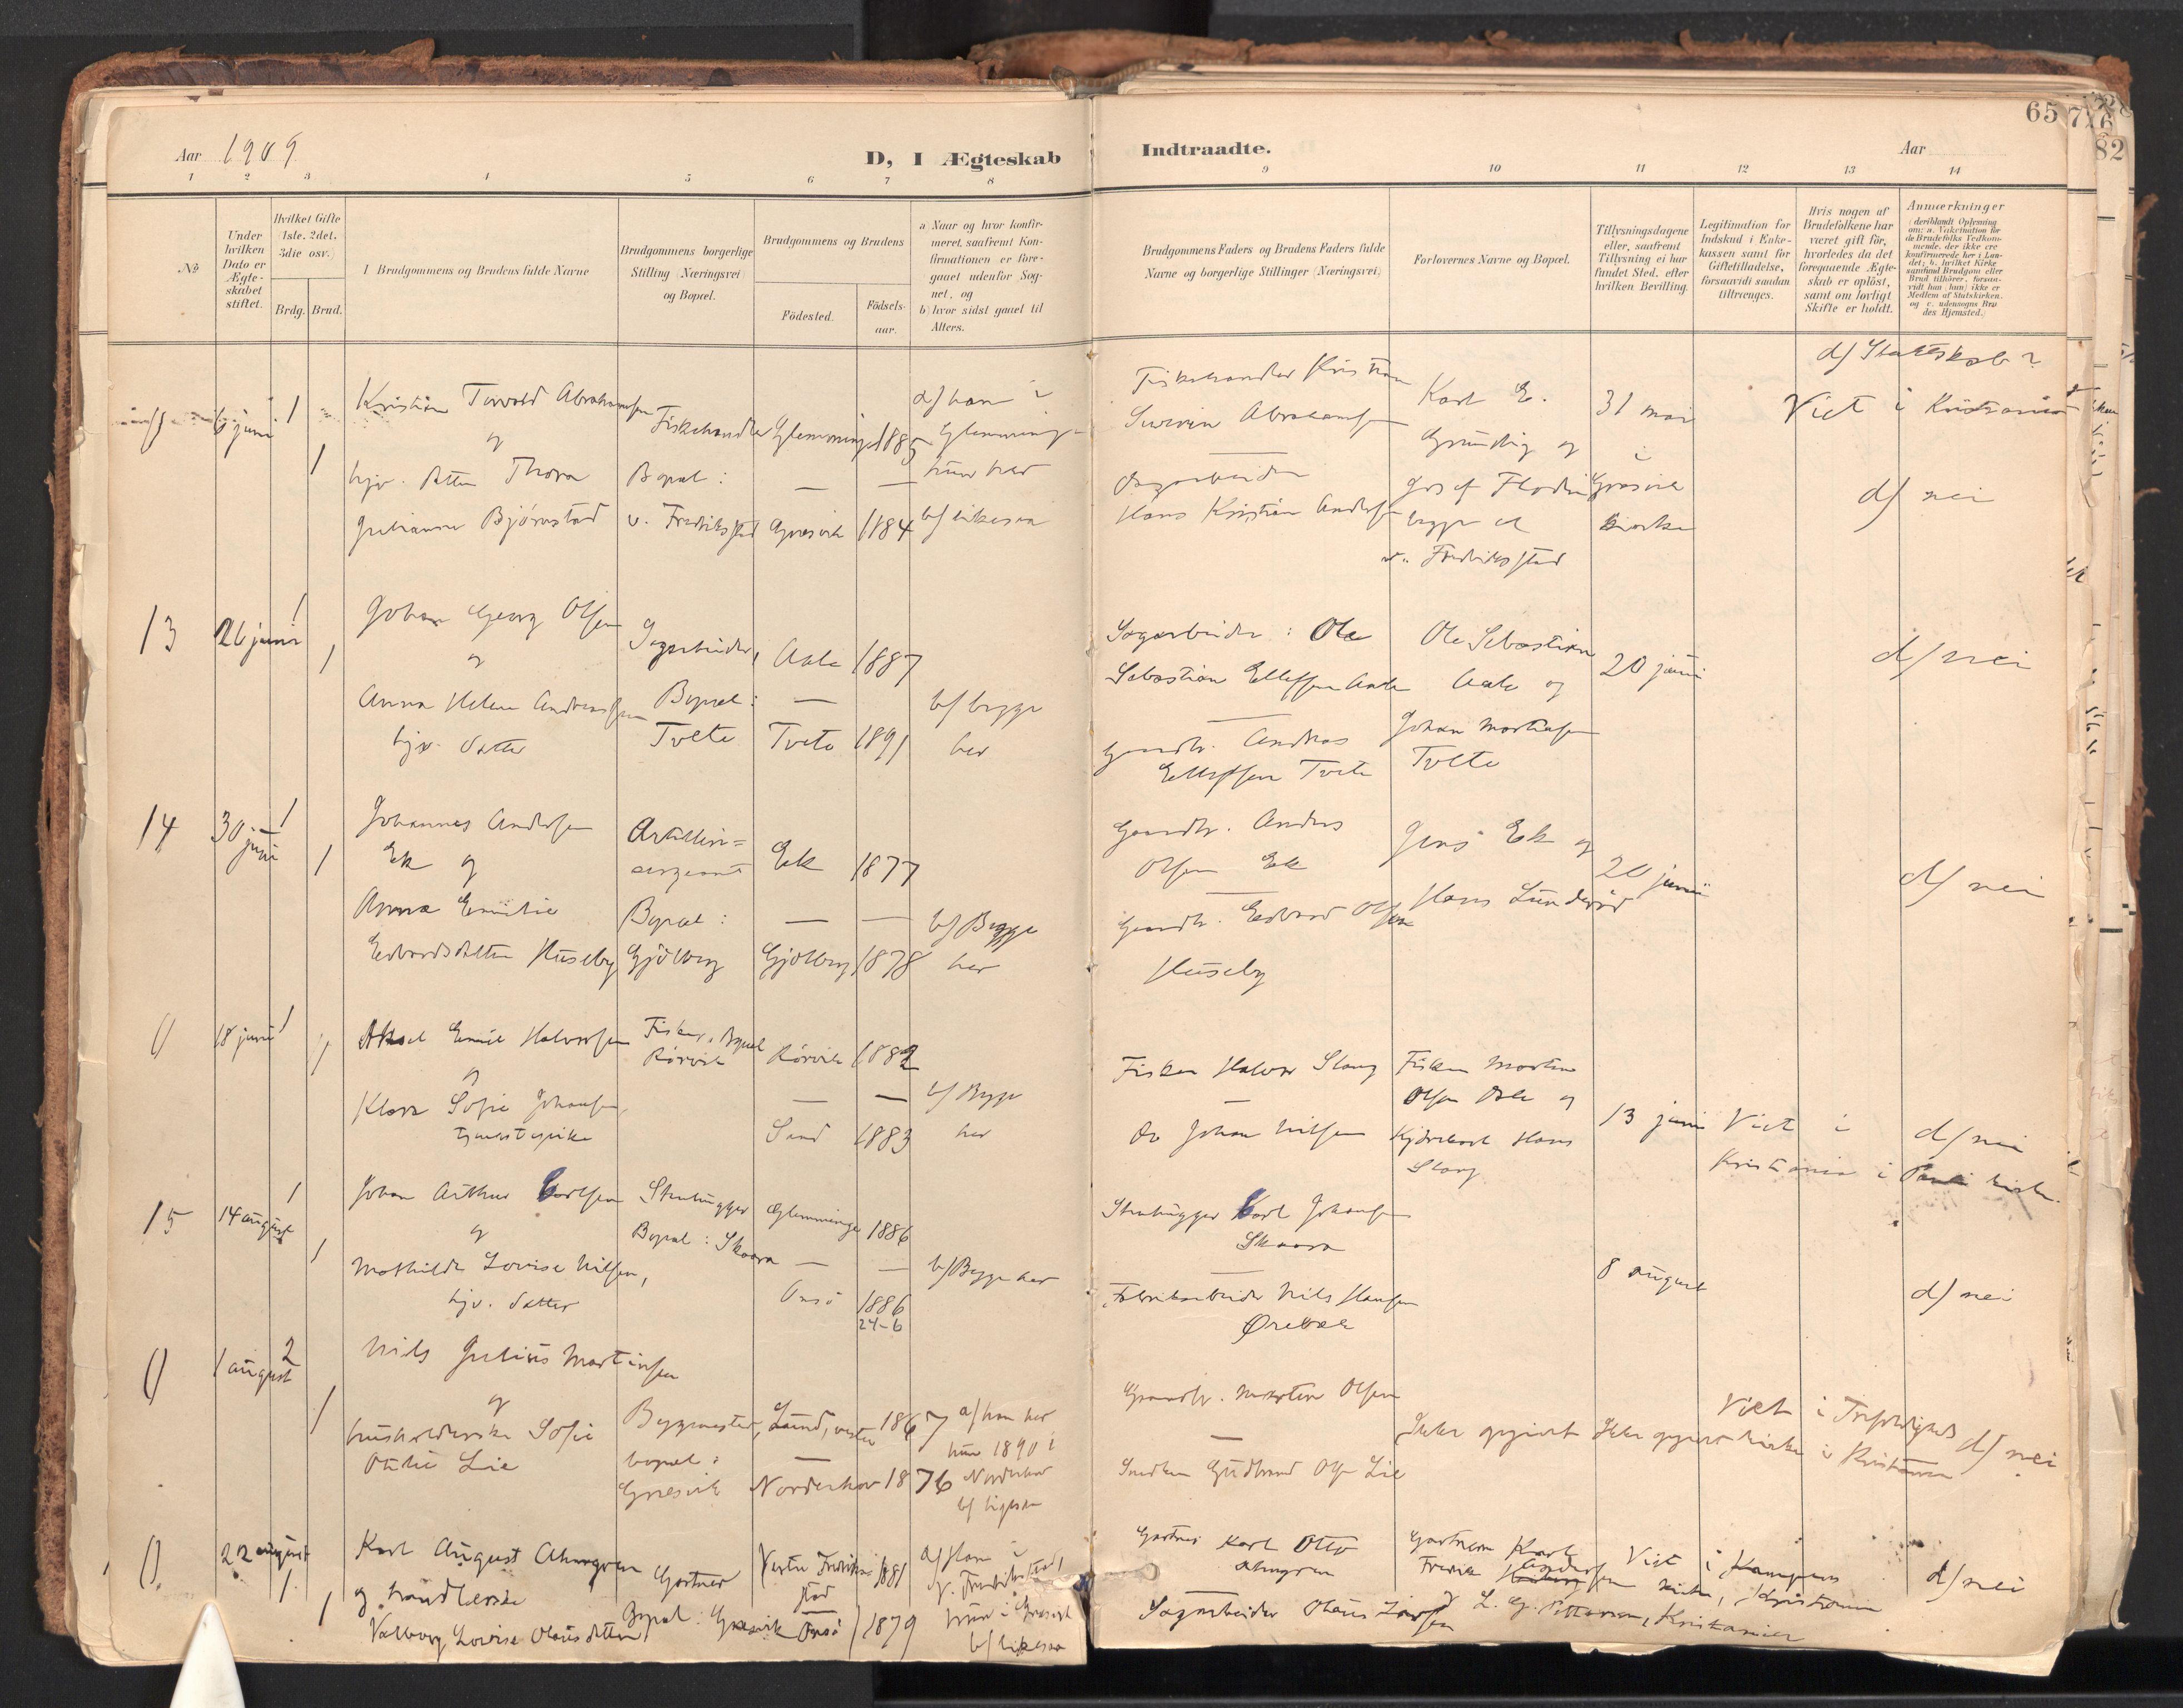 65
76
82
Aar 1909
D, I Ægteskab
Indtraadte.
Aar
1 2 3 4 5 6 7 8
9 10 11 12 13 14
No
Under hvilken Dato er Ægteskabet stiftet.
Hvilket Gifte 1ste, 2det, 3die osv.)
Brdg. Brud.
Brudgommens og Brudens fulde Navne
Brudgommens borgerlige Stilling (Næringsvei) og Bopæl.
Brudgommens og Brudens
Födested.
Födsels-aar.
a) Naar og hvor konfirmeret, saafremt Konfirmationen er foregaaet udenfor Sognet, og
b) hvor sidst gaaet til Alters.
Brudgommens Faders og Brudens Faders fulde Navne og borgerlige Stillinger (Næringsvei)
Forlovernes Navne og Bopæl.
Tillysningsdagene eller, saafremt Tillysning ei har fundet Sted, efter hvilken Bevilling.
Legitimation for Indskud i Enkekassen samt for Giftetilladelse, forsaavidt saadan tiltrænges.
Hvis nogen af Brudefolkene har været gift för, hvorledes da det foregaaende Ægteskab er oplöst, samt om lovligt Skifte er holdt.
Anmærkninger
6 juni 1
Kristian Torvald Abrahamsen
og
1 hjv. datter Thora
Julianne Bjørnstad
Fiskehandler
Bopæl:
v. Fredriksstad
Glemminge 1885
Græsvik 1884
a) han i
Glemminge
hun her
b) likesaa
Fiskehandler Kristian
Severin Abrahamsen
Dagarbeider
Hans Kristian Andersen
Karl E.
Grundig og
Josef Flodin
begge at
v. Fredriksstad
31 mai
i
Græsvik
kirke
Viet i Kristiania
d) nei
13 26 juni 1
1
Johan Georg Olsen
og
Anna Helene Andreassen
hjv. datter
Sagarbeider,
Bopæl:
Tvete
Aale 1887
Tvete 1891
b) begge
her
Sagarbeider: Ole
Sebastian Ellefsen Aale
Gaardbr. Andreas
Ellefsen Tvete
Ole Sebastian
Aale og
Johan Mathisen
Tvete
20 juni
d) nei
14 30 juni 1
1
Johannes Andersen
Ek og
Anna Emilie
Edvardsdatter Huseby
Artilleri=
sergeant
Bopæl:
Gjölberg
Ek 1877
Gjölberg 1878
b) Begge
her
Gaardbr. Anders
Olsen Ek
Gaardbr. Edvard Olsen
Huseby
Jens Ek og
Hans Lunderöd
20 juni
d) nei
0 18 juni 1
Aksel Emil Halvorsen
og
Klara Sofie Johansen,
tjenestepike
Fisker, Bopæl
Rörvik
Rörvik 1882
Sand 1883
b) Begge
her
Fisker Halvor Slang
Do Johan Nilsen
Fisker Martin
Olsen Dale og
Hans
Slang
13 juni
Viet i
Kristiania i Pauls kirke.
d) nei
15 14 august 1
1
Johan Arthur Carlsen
og
Mathilde Lovise Nilsen,
hjv. datter
Stenhugger
Bopæl: Skaara
Glemminge 1886
Onsö 1886
24-6
b) Begge her
Stenhugger Carl Johansen
Skaara
Fabrikarbeider Nils Hansen
Ørebæk
8 august
d) nei
0 1 august 2
1
Nils Julius Martinsen
og
husholderske Sofie
Otilie Lie
Bygmester,
bopæl:
Græsvik
Lund, vestre 1867
Norderhov 1876
a) han her
hun 1890 i
Norderhov
b) ligesaa
Gaardbr. Martin Olsen
Smeden Gudbrand Olsen Lie
Ikke opgivet
Ikke opgivet
Viet i Trefoldigheds
kirke i Kristiania
d) nei
0 22 august
1
1
Karl August Almgren
og handlerske
Valborg Lovise Olausdatter
Gartner
Bopæl: Græsvik
Vestre Fredriks
stad 1881
Onsö 1879
a) Han i
v. Fredriksstad,
hun i Græsvik
b) likesaa
Gartner Karl Otto
Almgren
Sagarbeider Olaus Larsen
Gartnerne Karl
Fredrik Andersen
og L. G. Pettersen, Kristiania
Viet i Kampens
kirke, Kristiania
d) nei